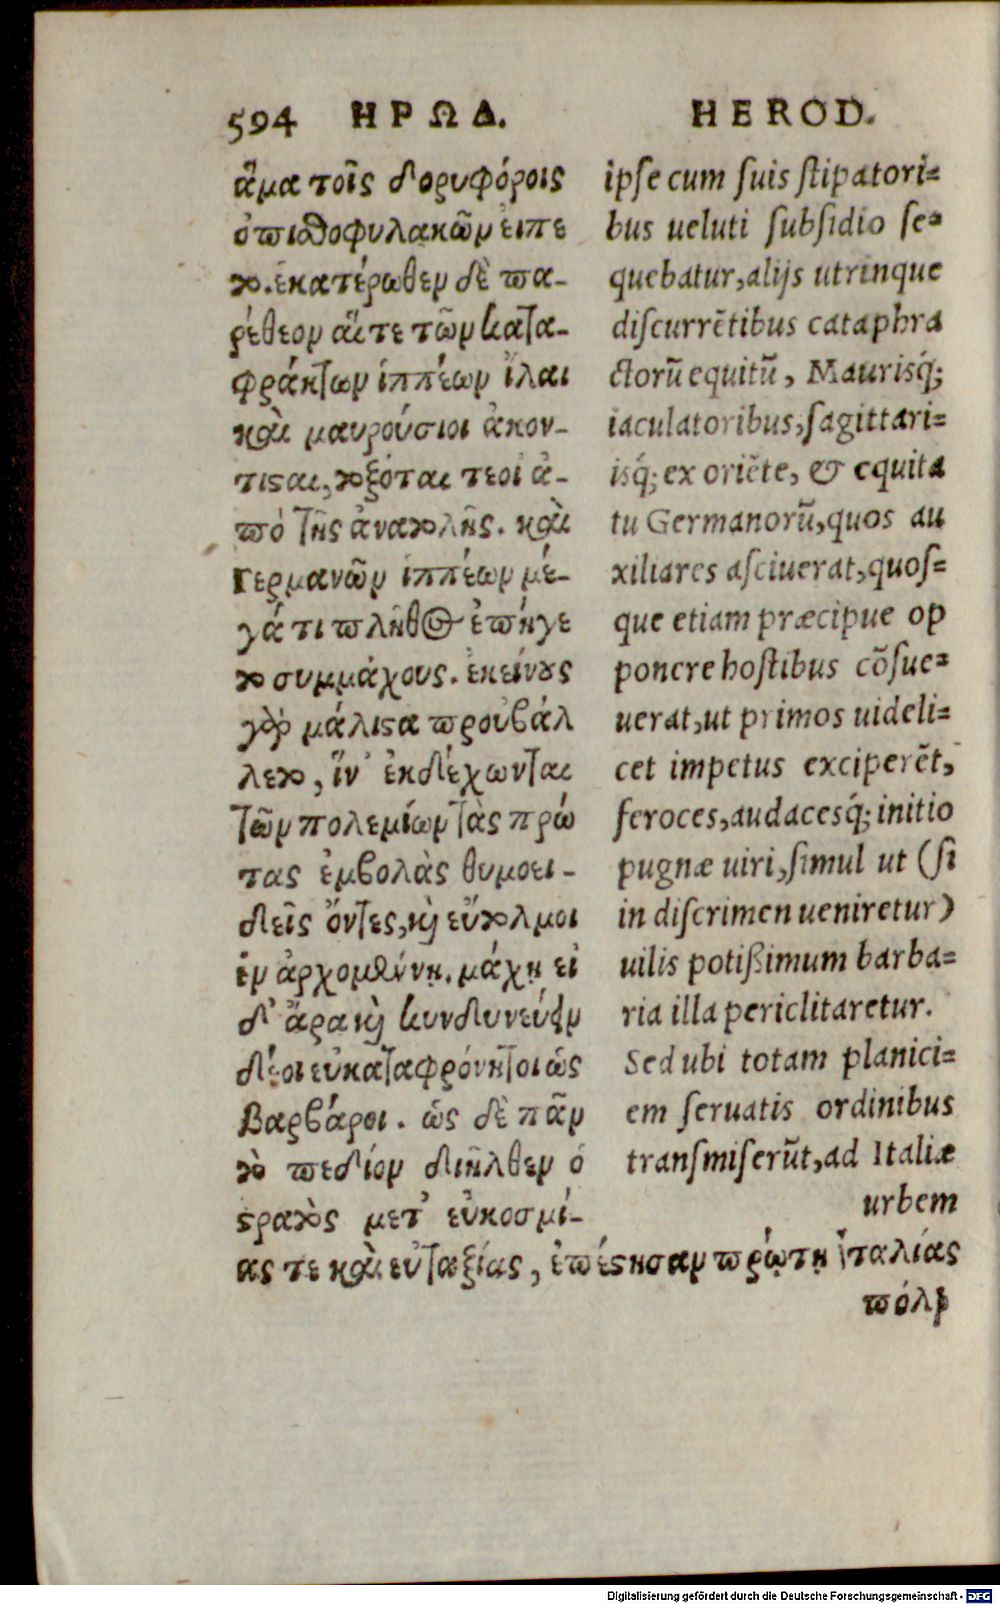 594 ΗΡΩΔ.
ἅμα τοῖς δορυφόροις
ὀπισθοφυλακῶν εἵπε
το. ἑκατέρωθεν δὲ πα-
ρέθεον αἵ τε τῶν κατα-
φράκτων ἱππέων ἴλαι
καὶ μαυρούσιοι ἀκον-
τισταὶ, τοξόται τε οἱ ἀ-
πὸ τῆς ἀνατολῆς. καὶ
Γερμανῶν ἱππέων μέ-
γά τι πλῆθος ἐπήγε
το συμμάχους. ἐκείνους
γὰρ μάλιστα προὐβάλ
λετο, ἵν' ἐκδέχωνται
τῶν πολεμίων τὰς πρώ
τας ἐμβολὰς θυμοει-
δεῖς ὄντες, καὶ εὔτολμοι
ἐν ἀρχομένῃ. μάχῃ εἰ
δ' ἄρα καὶ κινδυνεύειν
δέοι εὐκαταφρόνητοι ὡς
Βαρβάροι. ὡς δὲ πᾶν
τὸ πεδίον διῆλθεν ὁ
στρατὸς μετ' εὐκοσμί-
ας τε καὶ εὐταξίας, ἐπέστησαν πρώτῃ Ἰταλίας
πόλει
HEROD.
ipse cum suis stipatori=
bus ueluti subsidio se=
quebatur, alijs utrinque
discurrẽtibus cataphra
ctorũ equitũ, Maurisq́;
iaculatoribus, sagittari=
isq́; ex oriẽte, & equita
tu Germanorũ, quos au
xiliares asciuerat, quos=
que etiam præcipue op
ponere hostibus cõsue=
uerat, ut primos uideli=
cet impetus exciperẽt,
feroces, audacesq́; initio
pugnæ uiri, simul ut (si
in discrimen ueniretur)
uilis potißimum barba=
ria illa periclitaretur.
Sed ubi totam planici=
em seruatis ordinibus
transmiserũt, ad Italiæ
urbem
Digitalisierung gefördert durch die Deutsche Forschungsgemeinschaft - DFG